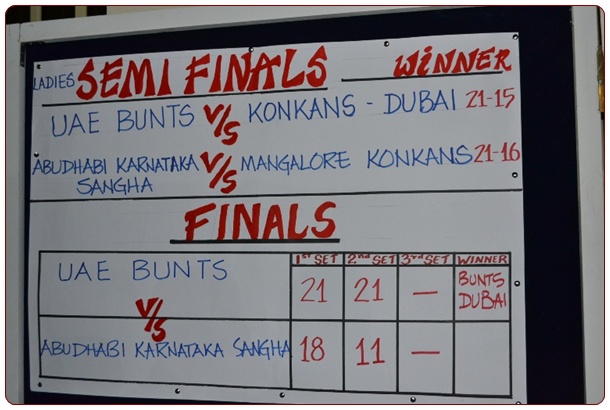 LADIES SEMI FINALS WINNER
UAE BUNTS V/S KONKANS - DUBAI 21-15
ABUDHABI KARNATAKA SANGHA V/S MANGALORE KONKANS 21-16
FINALS
1ST SET 2nd SET 3rd SET WINNER
UAE BUNTS 21 21 — BUNTS DUBAI
V/S
ABUDHABI KARNATAKA SANGHA 18 11 —